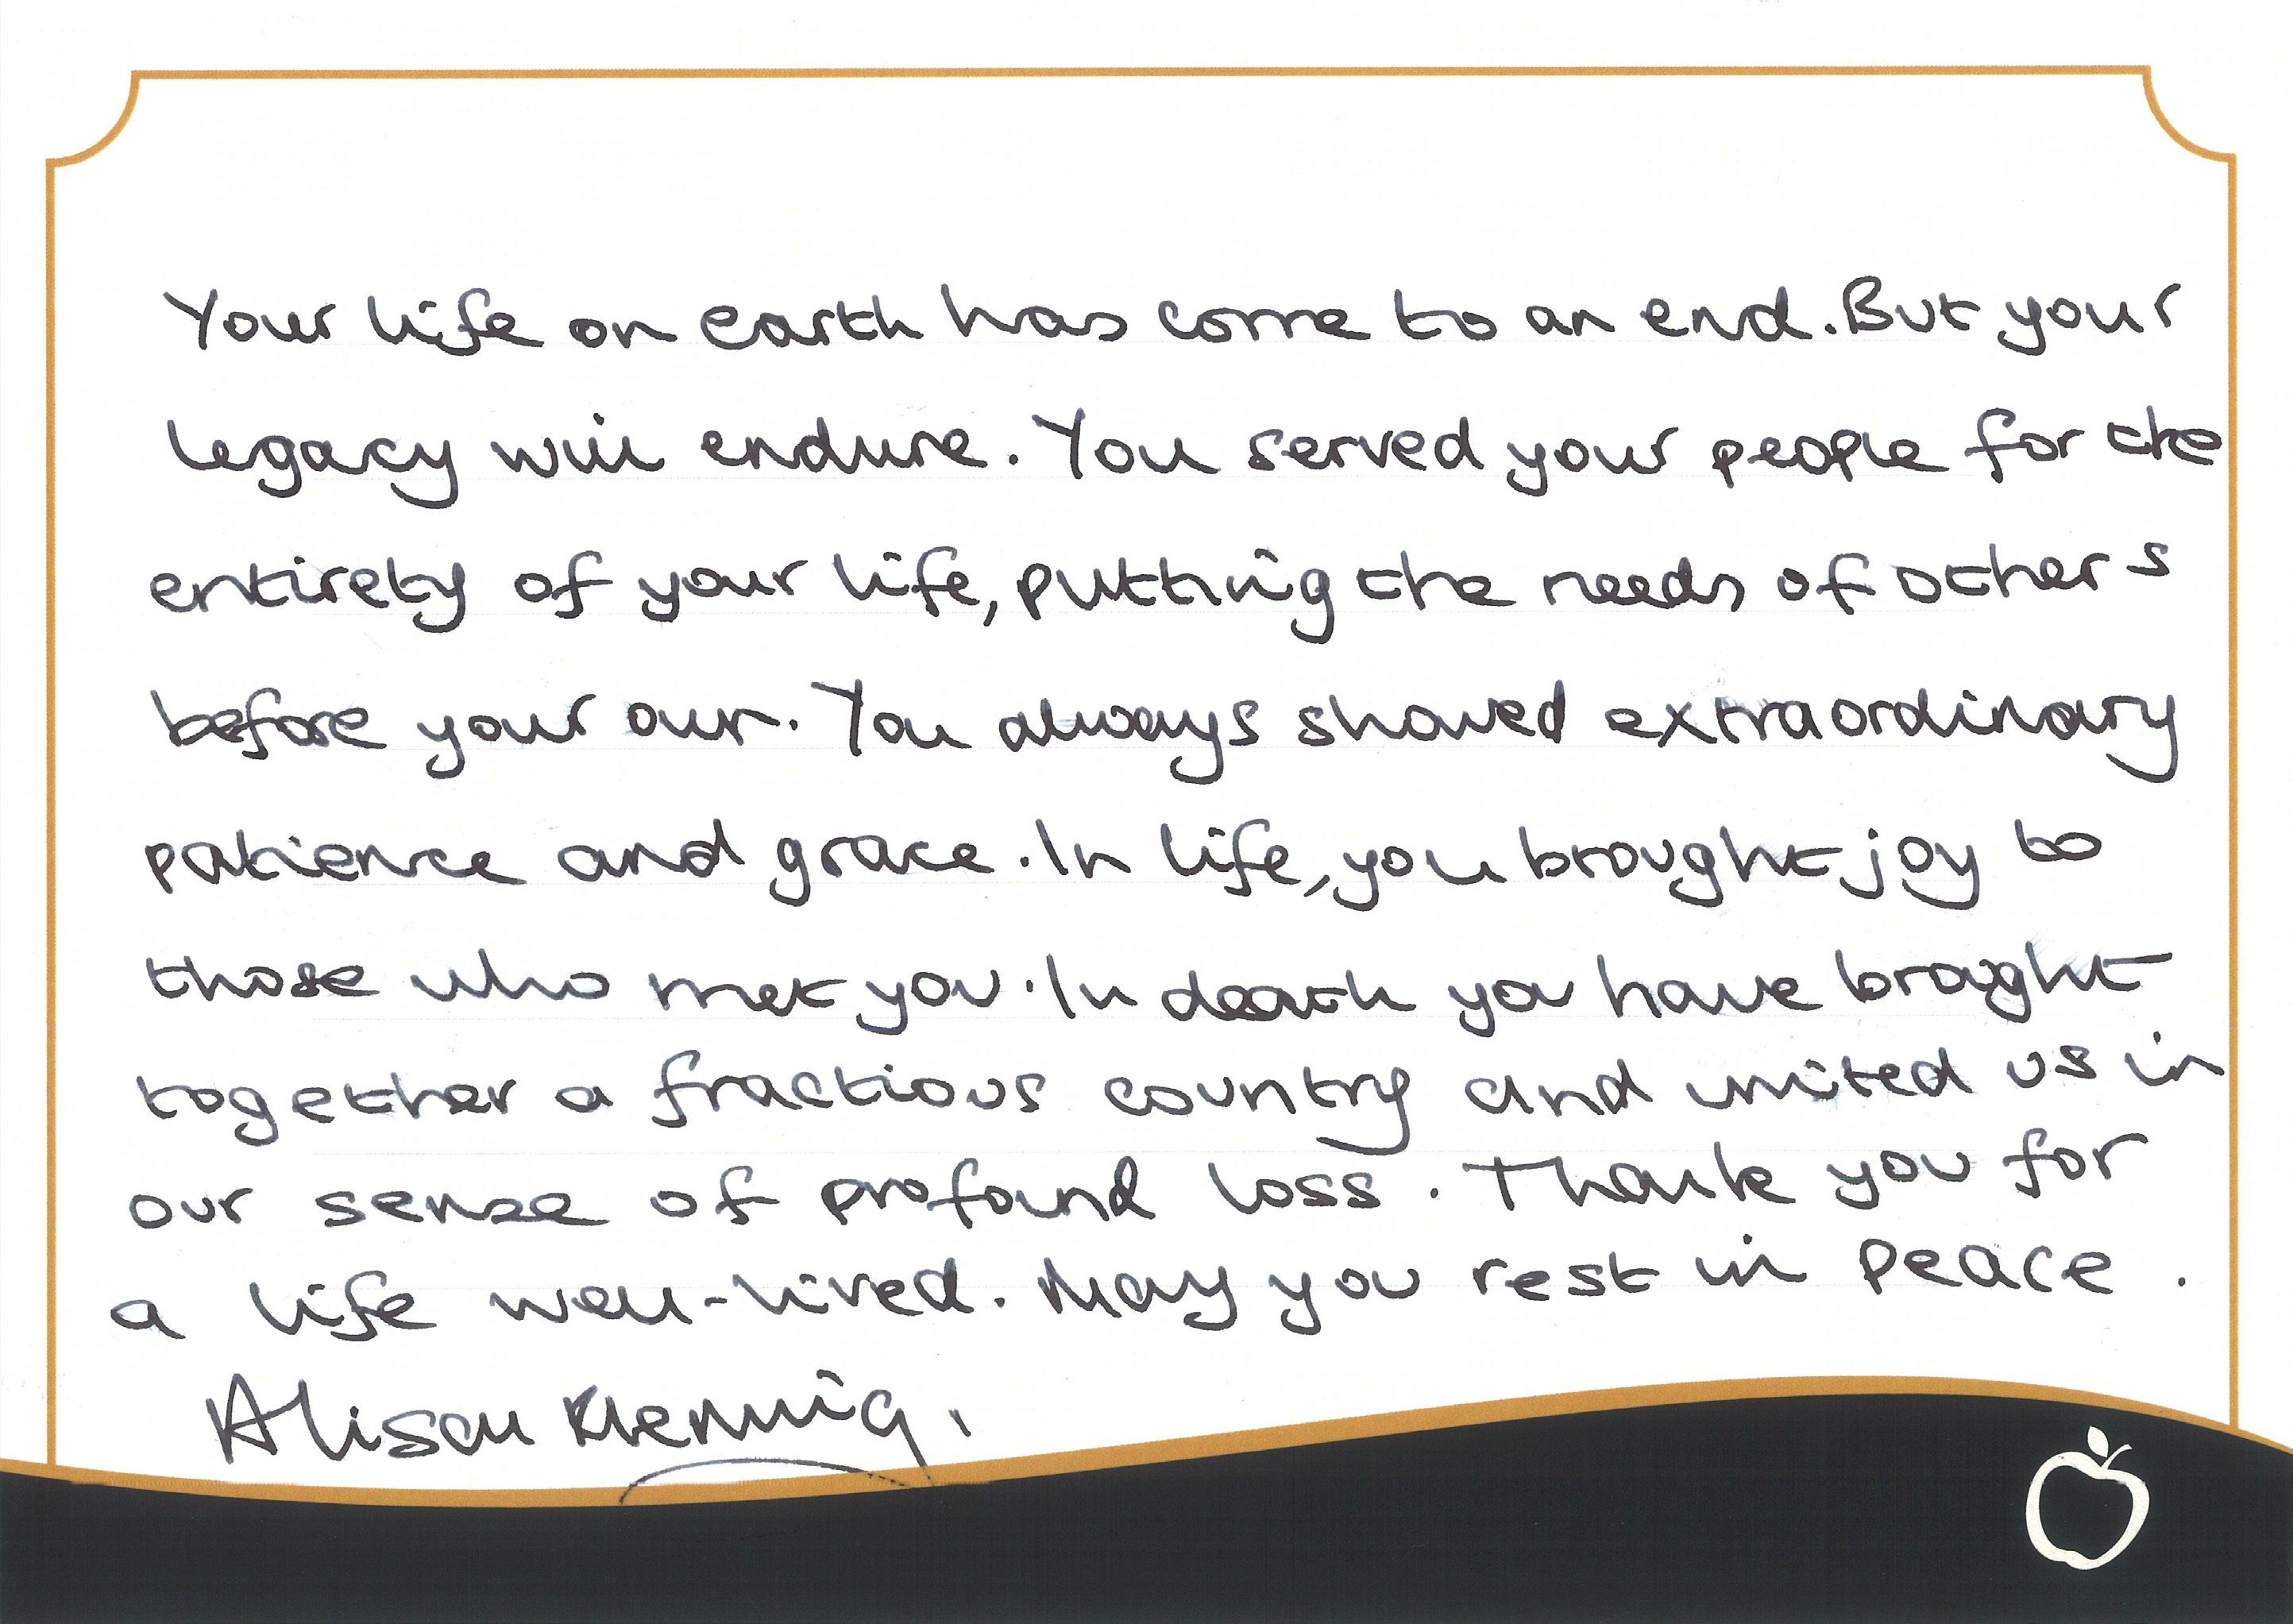 Your life on earth has come to an end. But your
legacy will endure. You served your people for the
entirety of your life, putting the needs of others
before your own. You always showed extraordinary
patience and grace. In life, you brought joy to
those who met you. In death you have brought
together a fractious country and united us in
our sense of profound loss. Thank you for
a life well-lived. May you rest in peace.
Alison